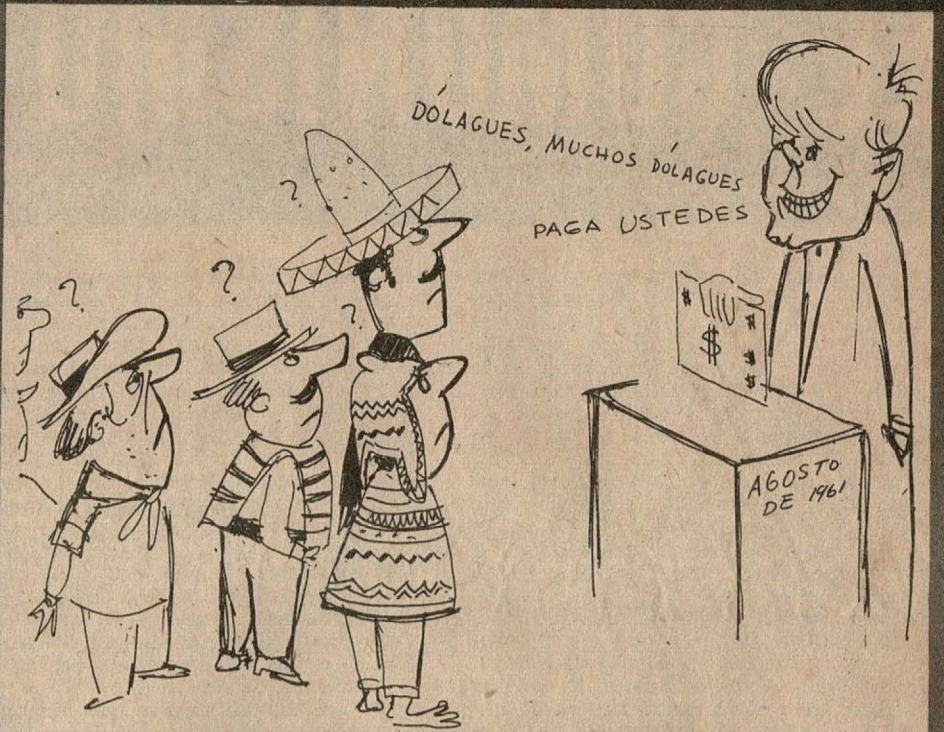 DÓLAGUES, MUCHOS DÓLAGUES
PAGA USTEDES
?
?
?
?
$
$
$
$
$
AGOSTO
DE 1961